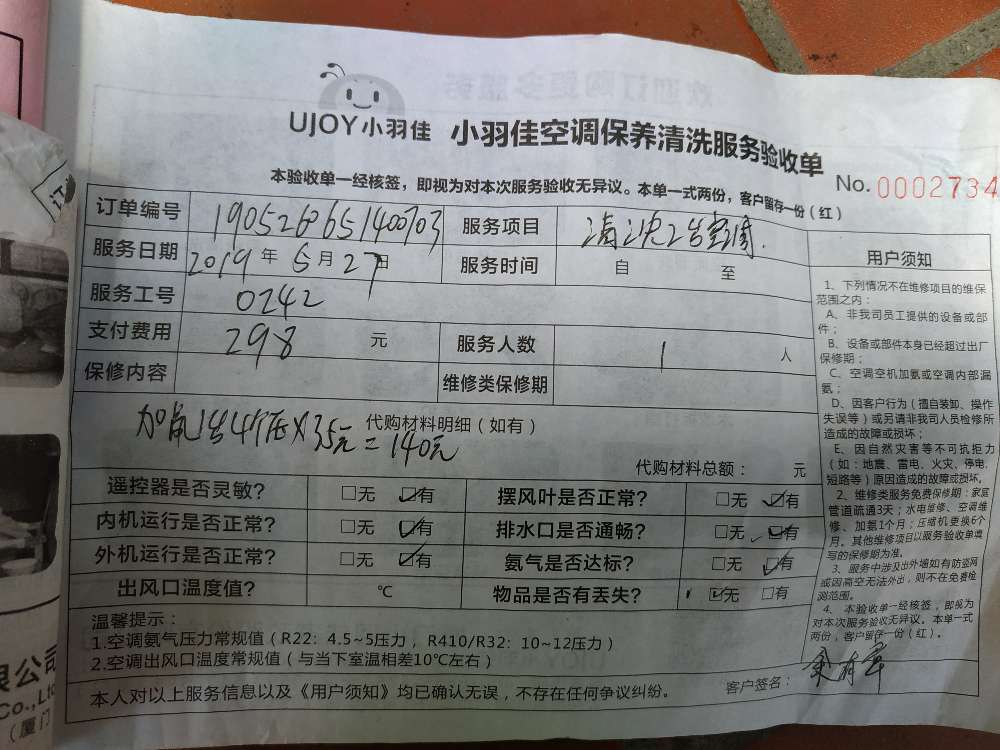 UJOY小羽佳 小羽佳空调保养清洗服务验收单
No. 0002734
本验收单一经核签，即视为对本次服务验收无异议。本单一式两份，客户留存一份（红）
订单编号 服务项目
服务日期 2019 年 5 月 27 日 服务时间 自 至
服务工号 0242
支付费用 298 元 服务人数 1 人
保修内容 维修类保修期
代购材料明细（如有）
加氨1台4个压X35元=140元
代购材料总额： 元
遥控器是否灵敏? □无 ☑有 摆风叶是否正常? □无 ☑有
内机运行是否正常? □无 ☑有 排水口是否通畅? □无 ☑有
外机运行是否正常? □无 ☑有 氨气是否达标? □无 ☑有
出风口温度值? ℃ 物品是否有丢失? ☑无 □有
温馨提示：
1.空调氨气压力常规值（R22：4.5~5压力，R410/R32：10~12压力）
2.空调出风口温度常规值（与当下室温相差10℃左右）
本人对以上服务信息以及《用户须知》均已确认无误，不存在任何争议纠纷。
客户签名：
用户须知
1、下列情况不在维修项目的维保
范围之内：
A、非我司员工提供的设备或部
件；
B、设备或部件本身已经超过出厂
保修期；
C、空调空机加氨或空调内部漏
氨；
D、因客户行为（擅自装卸、操作
失误等）或另请非我司人员检修所
造成的故障或损坏；
E、因自然灾害等不可抗拒力
（如：地震、雷电、火灾、停电、
短路等）原因造成的故障或损坏。
2、维修类服务免费保修期：家庭
管道疏通3天；水电维修、空调维
修、加氨1个月；压缩机更换6个
月。其他维修项目以服务验收单填
写的保修期为准。
3、服务中涉及出外墙如有防盗网
或因高空无法外出，则不在免费检
测范围。
4、本验收单一经核签，即视为
对本次服务验收无异议。本单一式
两份，客户留存一份（红）。
限公司
Co.,Ltd
（厦门